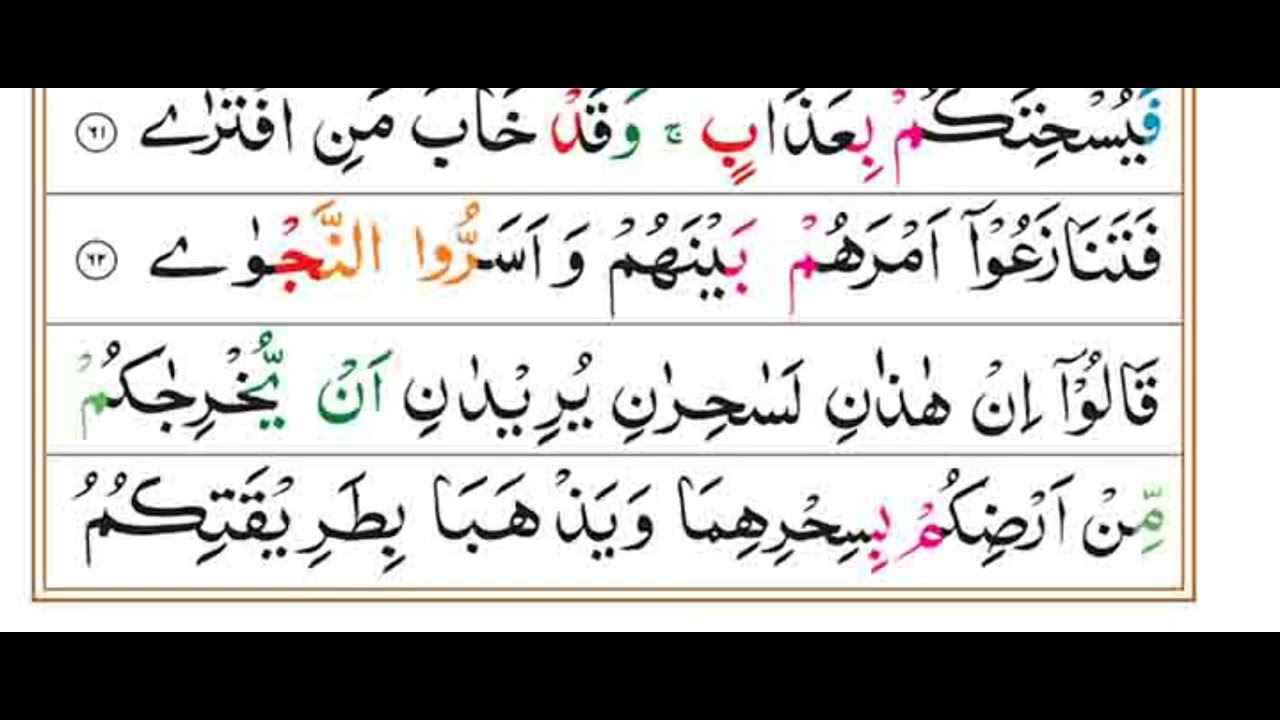 فَيُسْحِتَكُمْ بِعَذَابٍ ۚ وَقَدْ خَابَ مَنِ افْتَرٰے ٦١
فَتَنَازَعُوْٓا اَمْرَهُمْ بَيْنَهُمْ وَاَسَرُّوا النَّجْوٰے ٦٢
قَالُوْٓا اِنْ هٰذٰنِ لَسٰحِرٰنِ يُرِيْدٰنِ اَنْ يُّخْرِجٰكُمْ
مِّنْ اَرْضِكُمْ بِسِحْرِهِمَا وَيَذْهَبَا بِطَرِيْقَتِكُمُ